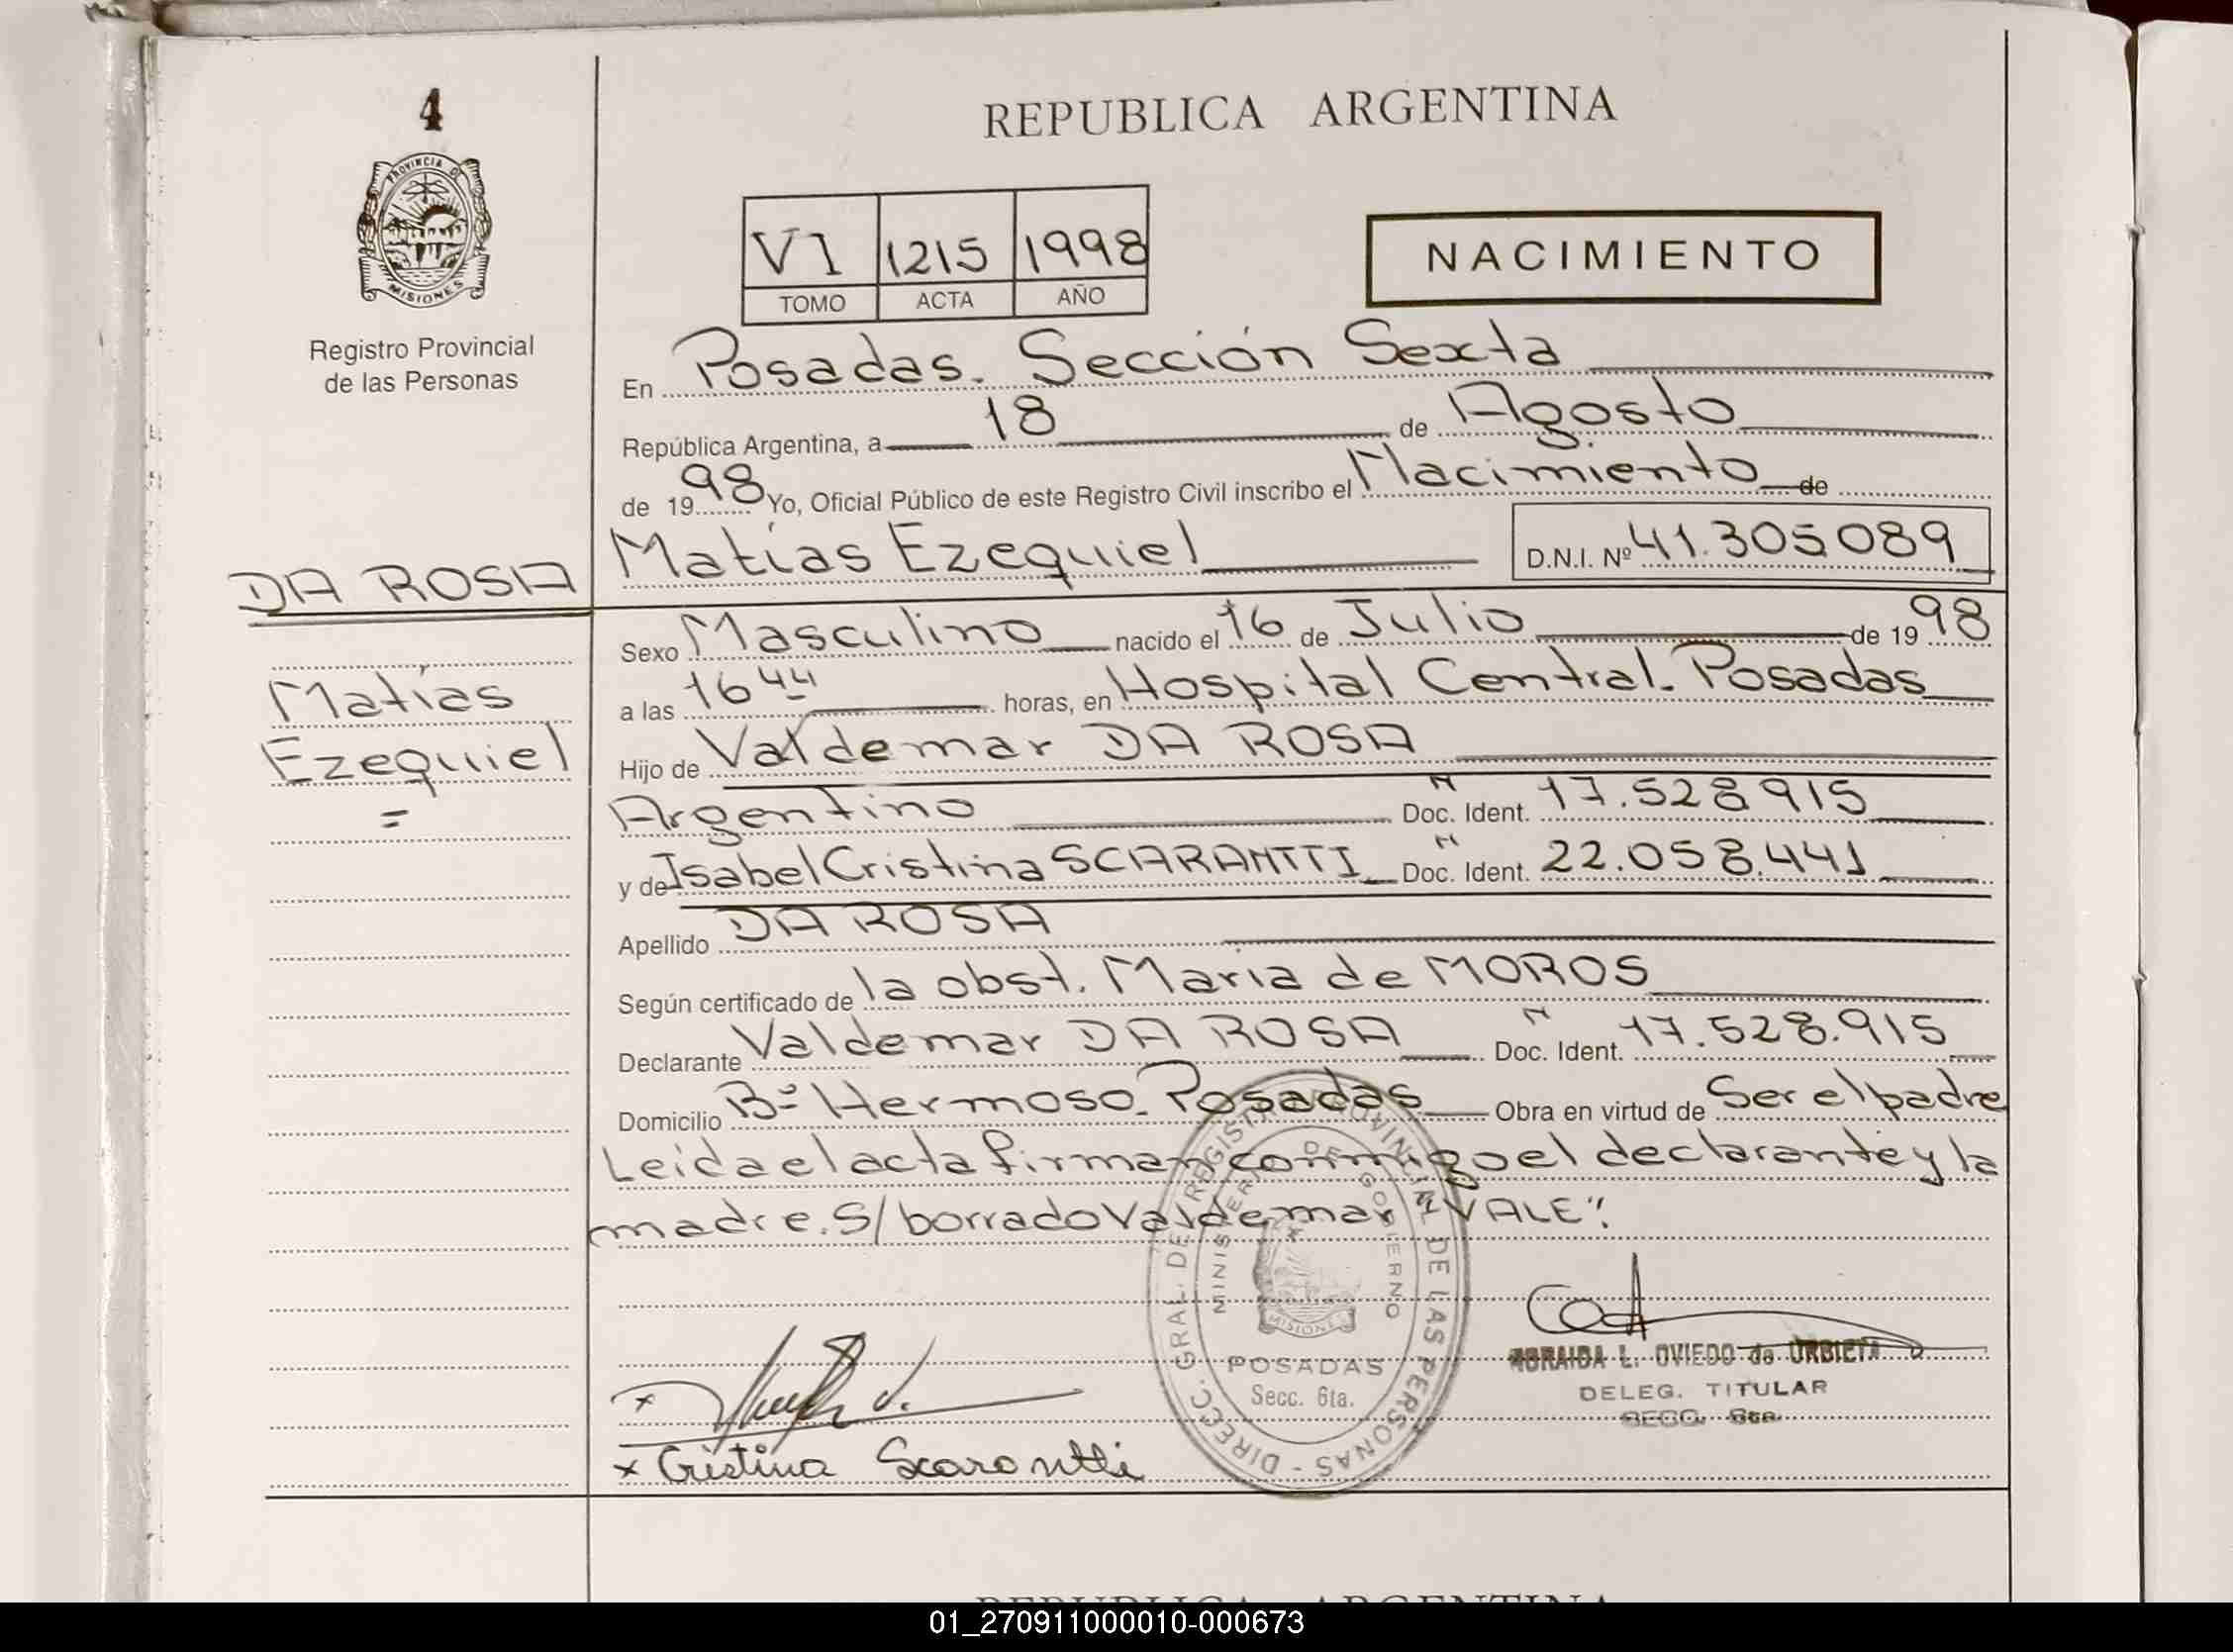 4
PROVINCIA DE
MISIONES
Registro Provincial
de las Personas
DA ROSA
Matías
Ezequiel
=
REPUBLICA ARGENTINA
VI 1215 1998
TOMO ACTA AÑO
NACIMIENTO
En Posadas. Sección Sexta
República Argentina, a 18 de Agosto
de 1998 Yo, Oficial Público de este Registro Civil inscribo el Nacimiento de
Matías Ezequiel D.N.I. Nº 41.305.089
Sexo Masculino nacido el 16 de Julio de 1998
a las 16 44 horas, en Hospital Central. Posadas
Hijo de Valdemar DA ROSA
Argentino Doc. Ident. 17.528.915
y de Isabel Cristina SCARANTTI Doc. Ident. 22.058.441
Apellido DA ROSA
Según certificado de la obst. Maria de MOROS
Declarante Valdemar DA ROSA Doc. Ident. 17.528.915
Domicilio Bº Hermoso. Posadas Obra en virtud de Ser el padre
Leída el acta firman conmigo el declarante y la
madre. S/ borrado Valdemar "VALE".
DIREC. GRAL. DE REGISTRO PROVINCIAL DE LAS PERSONAS -
MINISTERIO DE GOBIERNO
MISIONES
POSADAS
Secc. 6ta.
L. OVIEDO de URBIETA
DELEG. TITULAR
SECC. 6ta.
x
x Cristina Scarantti
REPUBLICA ARGENTINA
01_270911000010-000673